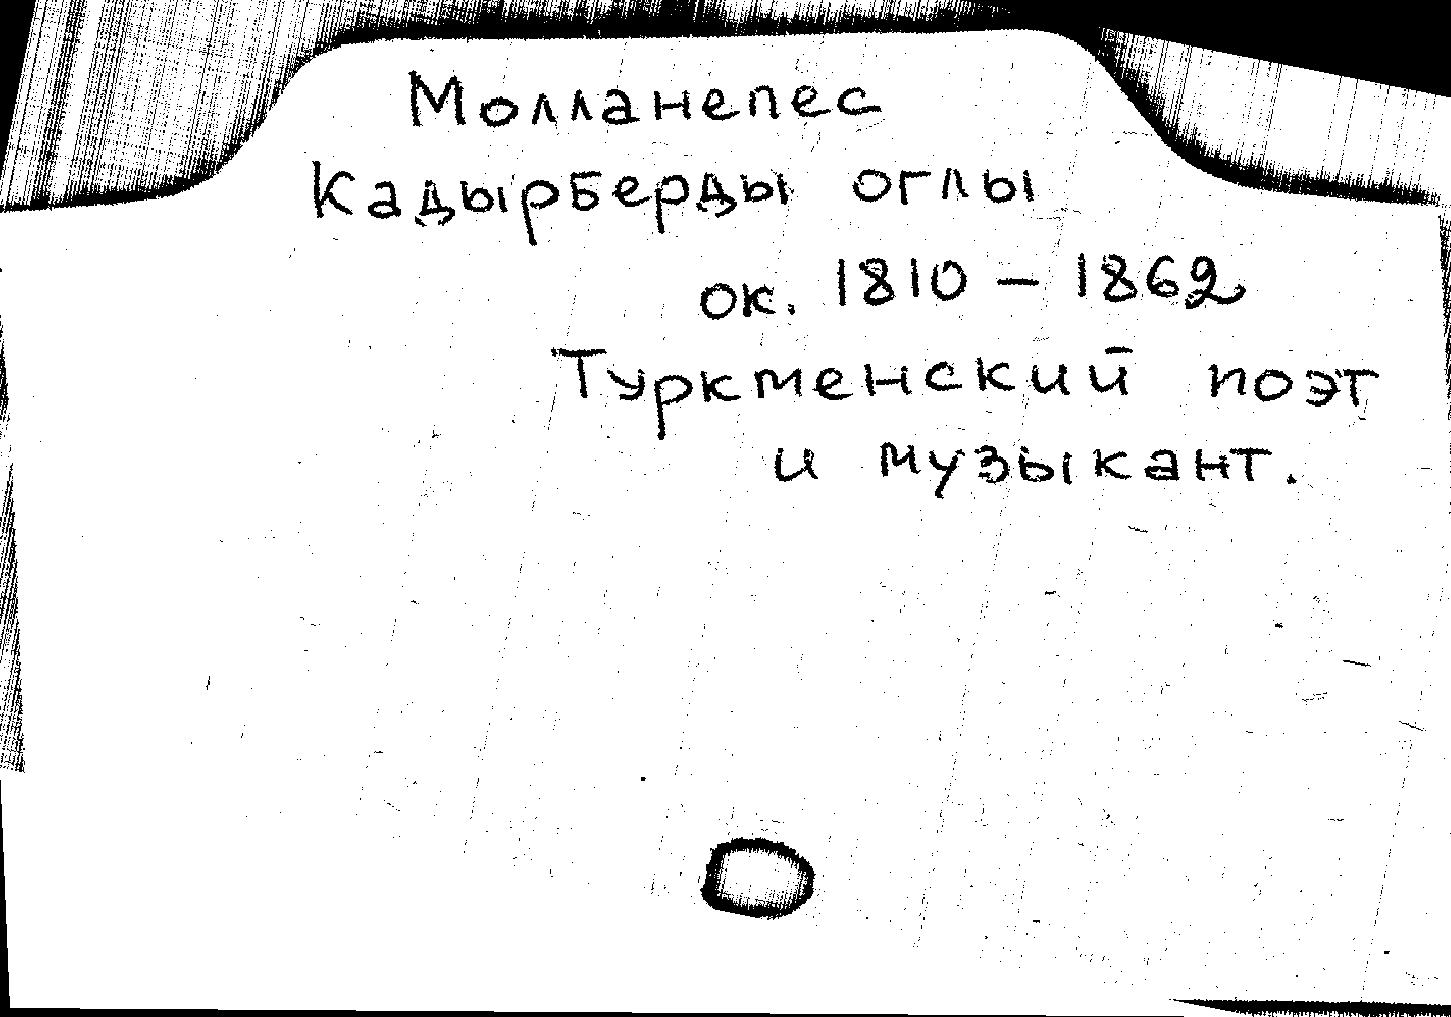 Молланепес
Кадырберды оглы
ок. 1810 – 1862
Туркменский поэт
и музыкант.